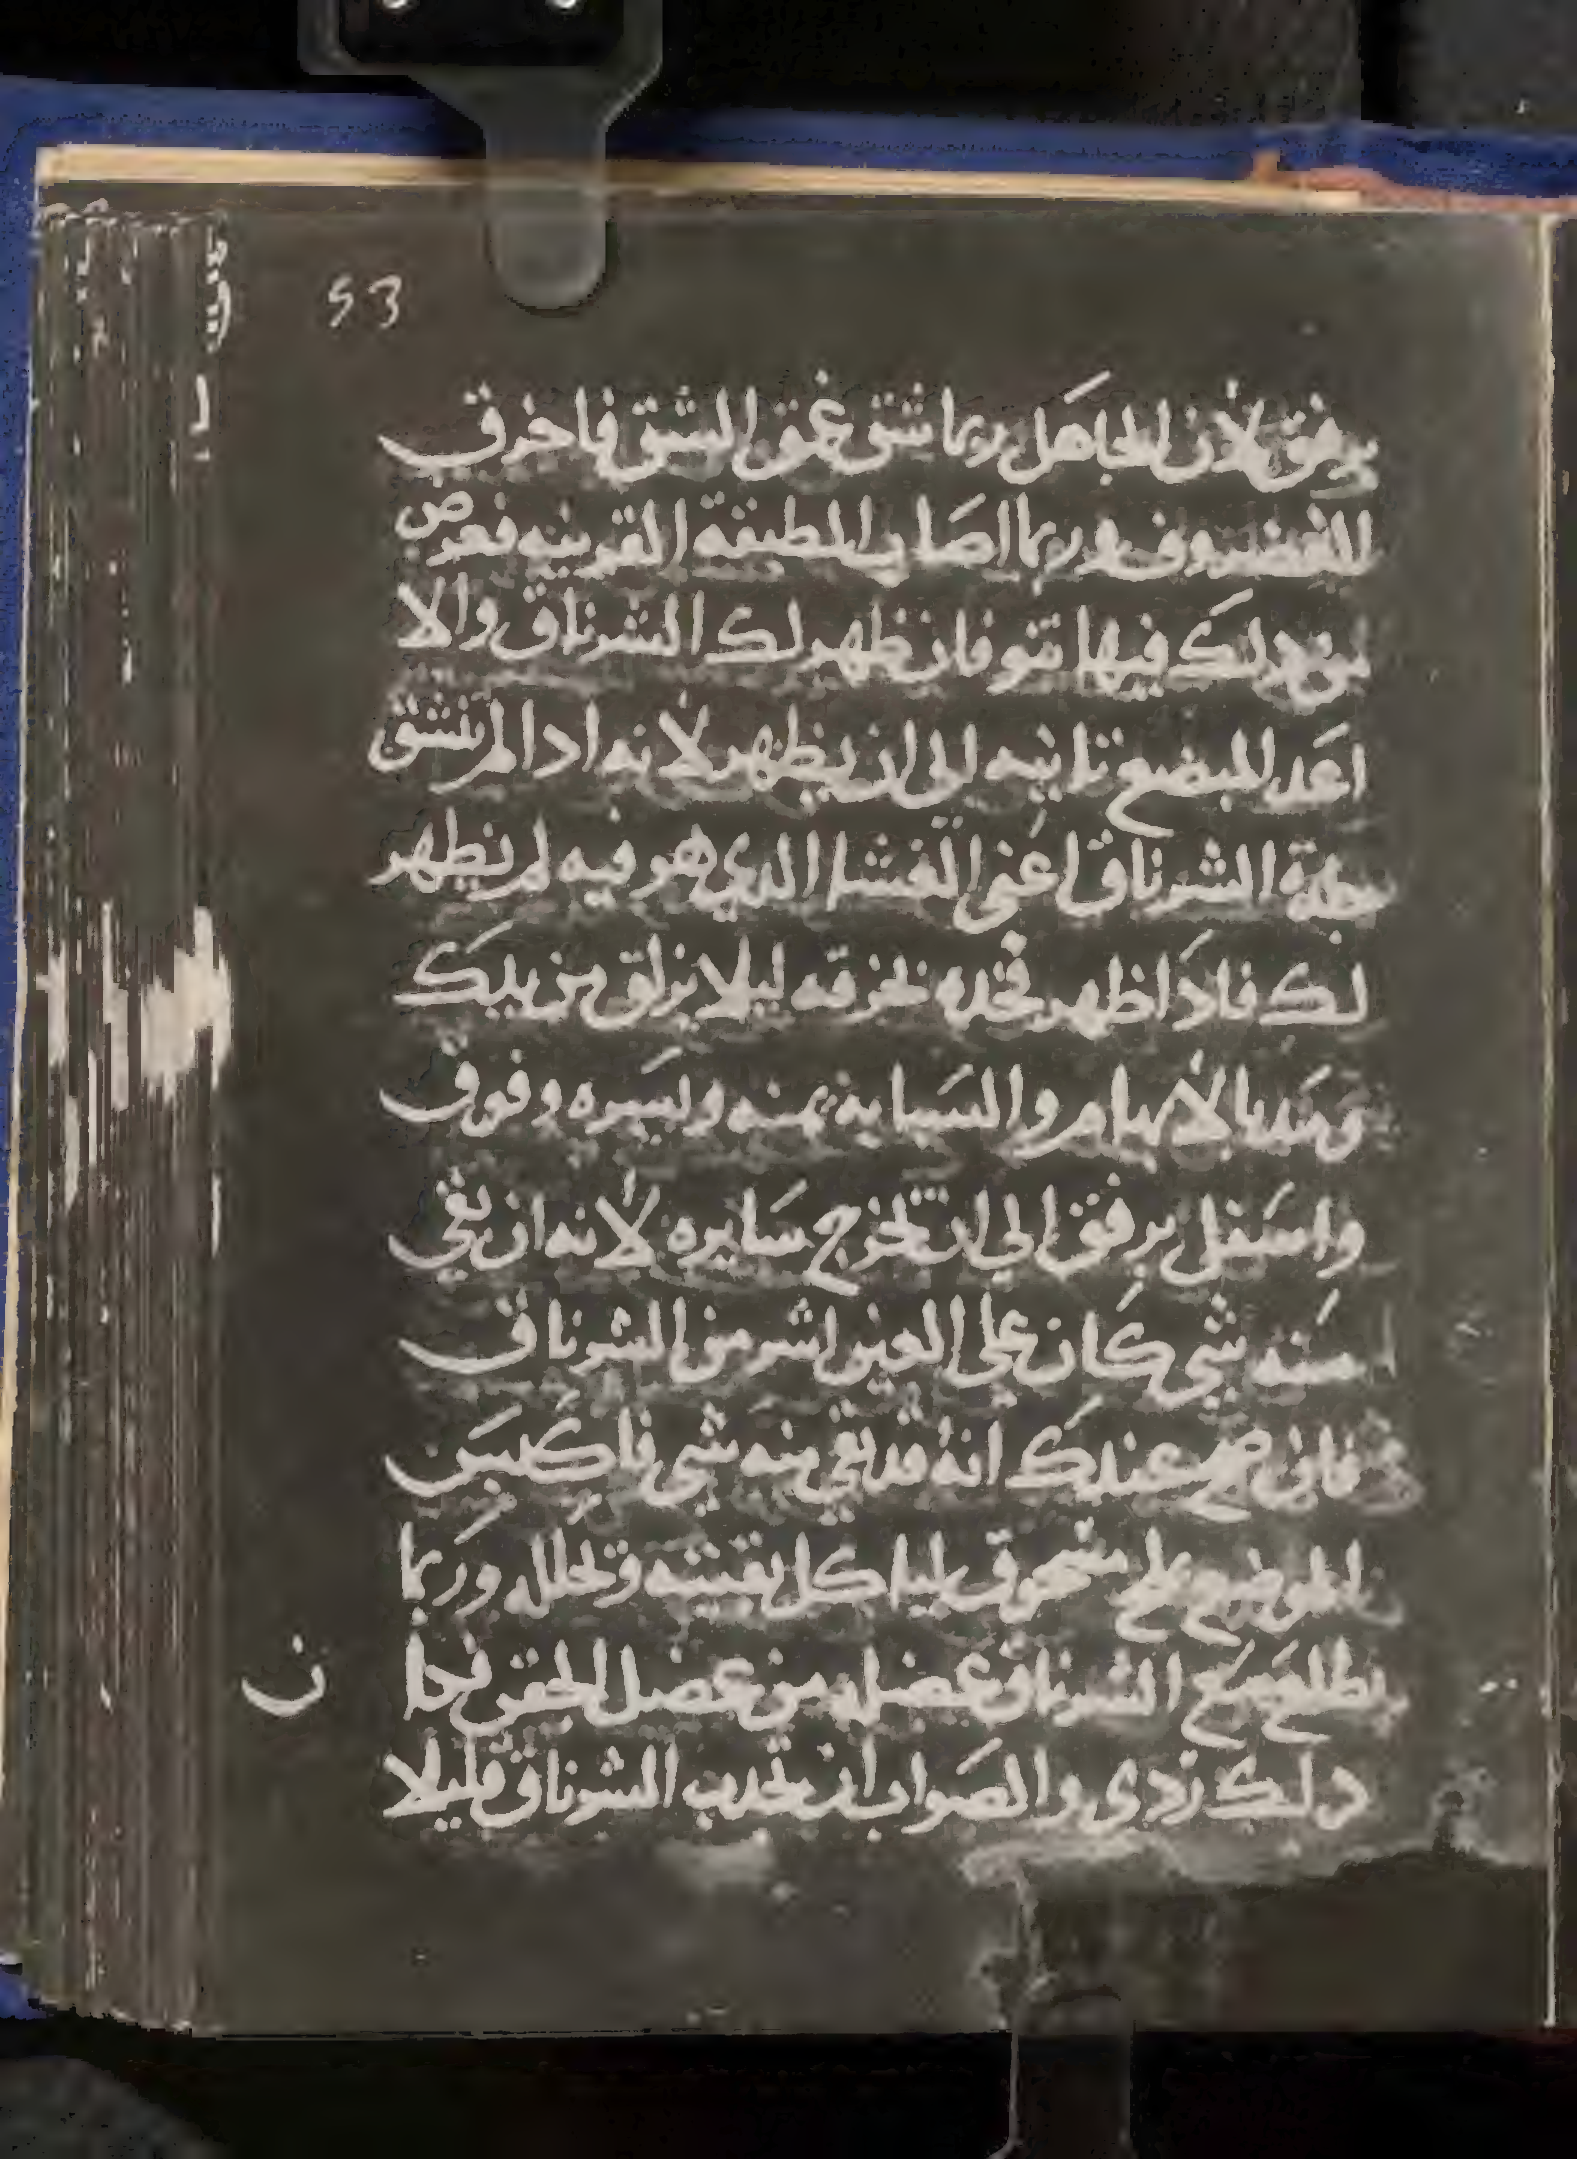 53
برفق لان الجاهل ربما شق عمق الشق فاخرق
الغضروف وربما اصاب الطبقة القرنيه فعرض
من دلك فيها نتو فان ظهر لك الشرناق والا
اعد المبضع ثانيه الي ان يظهر لانه ادا لم ينشق
جلدة الشرناق اعني الغشا الدي هو فيه لم يظهر
لك فادا ظهر فخده بخرقه ليلا يزلق من يدك
ومده بالابهام والسبابه يمنه ويسره وفوق
واسفل برفق الي ان تخرج سايره لانه ان بقي
منه شي كان علي العين اشر من الشرناق
فان صح عندك انه قد بقي منه شي فاكبس
الموضع بملح مسحوق لياكل بقيته وتحلله وربما
يطلع مع الشرناق عضله من عضل الجفن فجا
ن
دلك ردي والصواب ان تجدب الشرناق قليلا